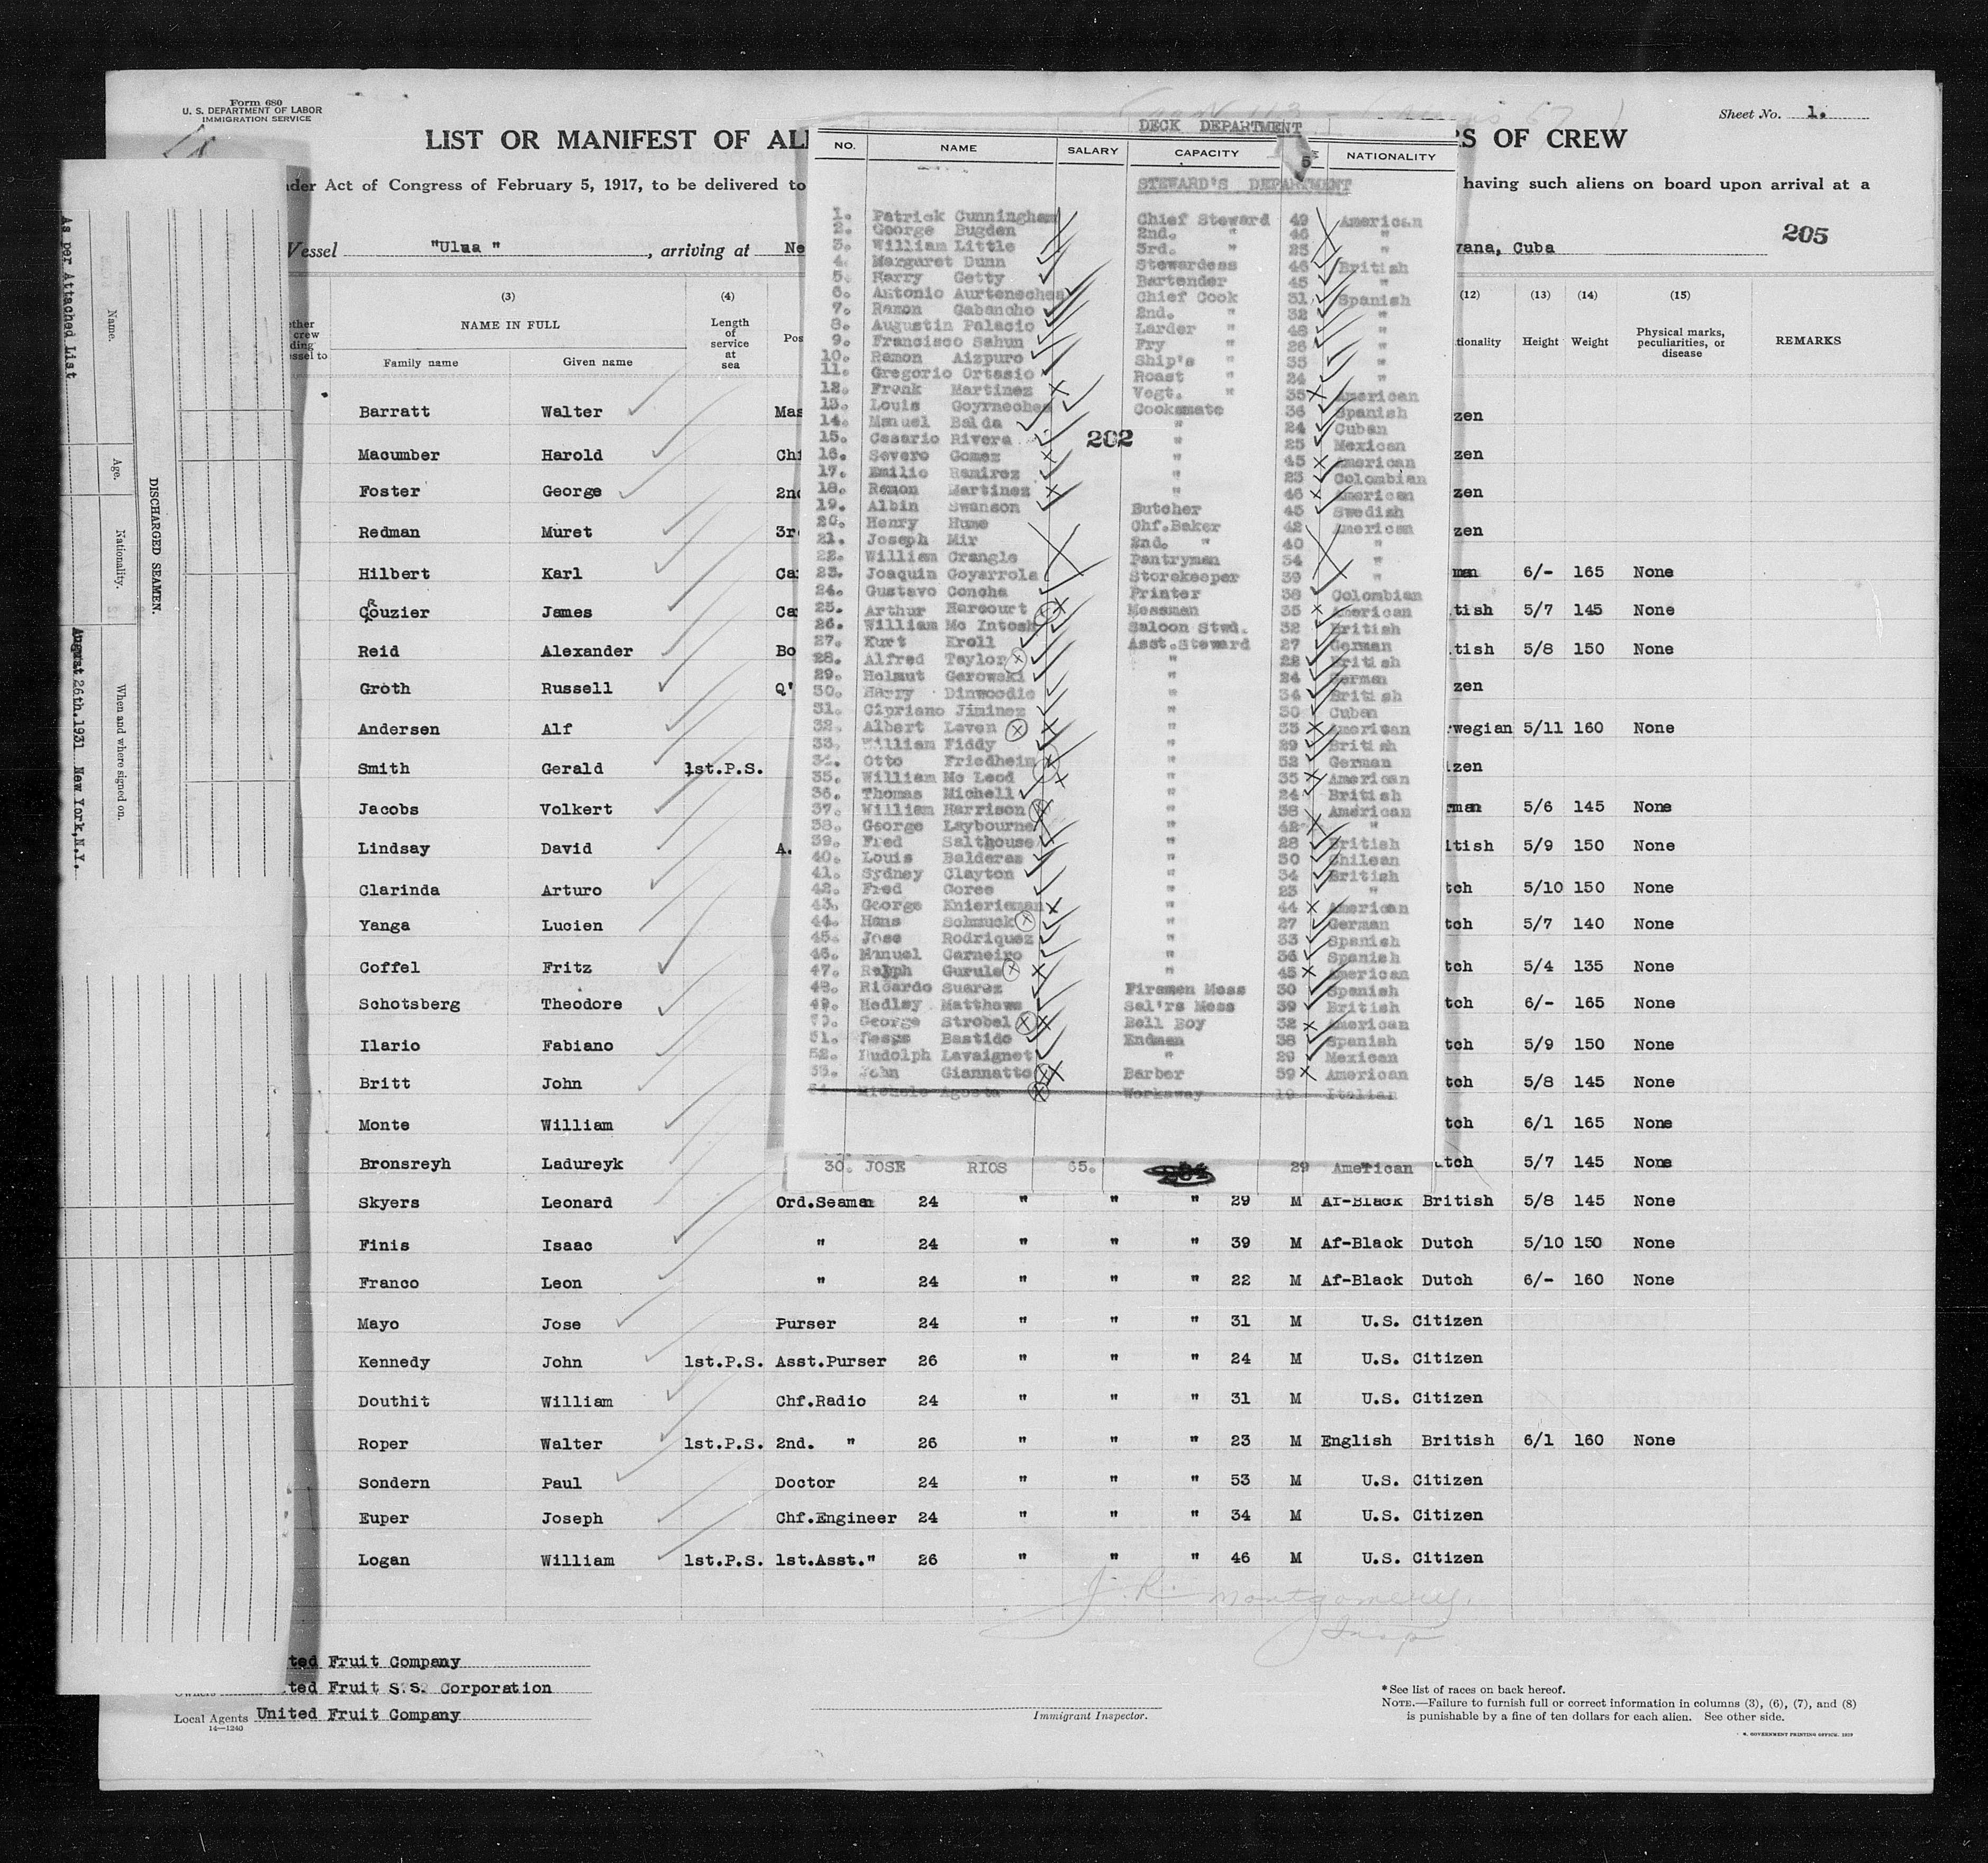 Form 680
U. S. DEPARTMENT OF LABOR
IMMIGRATION SERVICE
Sheet No. 1.
LIST OR MANIFEST OF AL
S OF CREW
der Act of Congress of February 5, 1917, to be delivered to
having such aliens on board upon arrival at a
Vessel "Ulua", arriving at Ne
vana, Cuba
205
(3)
(4)
(12)
(13)
(14)
(15)
NAME IN FULL
Family name
Given name
Length of service at sea
Pos
tionality
Height
Weight
Physical marks, peculiarities, or disease
REMARKS
Barratt Walter Mas zen
Macumber Harold Chi zen
Foster George 2nd zen
Redman Muret 3r zen
Hilbert Karl Ca man 6/- 165 None
Couzier James Ca tish 5/7 145 None
Reid Alexander Bo tish 5/8 150 None
Groth Russell Q' zen
Andersen Alf wegian 5/11 160 None
Smith Gerald 1st.P.S. zen
Jacobs Volkert man 5/6 145 None
Lindsay David A. itish 5/9 150 None
Clarinda Arturo tch 5/10 150 None
Yanga Lucien tch 5/7 140 None
Coffel Fritz tch 5/4 135 None
Schotsberg Theodore tch 6/- 165 None
Ilario Fabiano tch 5/9 150 None
Britt John tch 5/8 145 None
Monte William tch 6/1 165 None
Bronsreyh Ladureyk utch 5/7 145 None
Skyers Leonard Ord.Seaman 24 " " " 29 M Af-Black British 5/8 145 None
Finis Isaac " 24 " " " 39 M Af-Black Dutch 5/10 150 None
Franco Leon " 24 " " " 22 M Af-Black Dutch 6/- 160 None
Mayo Jose Purser 24 " " " 31 M U.S. Citizen
Kennedy John 1st.P.S. Asst.Purser 26 " " " 24 M U.S. Citizen
Douthit William Chf.Radio 24 " " " 31 M U.S. Citizen
Roper Walter 1st.P.S. 2nd. " 26 " " " 23 M English British 6/1 160 None
Sondern Paul Doctor 24 " " " 53 M U.S. Citizen
Euper Joseph Chf.Engineer 24 " " " 34 M U.S. Citizen
Logan William 1st.P.S. 1st.Asst." 26 " " " 46 M U.S. Citizen
J. R. Montgomery.
Insp
ted Fruit Company
Owners ted Fruit S.S. Corporation
Local Agents United Fruit Company
14—1240
Immigrant Inspector.
* See list of races on back hereof.
NOTE.—Failure to furnish full or correct information in columns (3), (6), (7), and (8)
is punishable by a fine of ten dollars for each alien. See other side.
GOVERNMENT PRINTING OFFICE
DECK DEPARTMENT
NO. NAME SALARY CAPACITY NATIONALITY
STEWARD'S DEPARTMENT
1. Patrick Cunningham Chief Steward 49 American
2. George Bugden 2nd. " 46 "
3. William Little 3rd. " 25 "
4. Margaret Dunn Stewardess 46 British
5. Harry Getty Bartender 45 "
6. Antonio Aurteneches Chief Cook 31 Spanish
7. Ramon Gabancho 2nd. " 32 "
8. Augustin Palacio Larder " 48 "
9. Francisco Sahun Fry " 26 "
10. Ramon Aizpuro Ship's " 35 "
11. Gregorio Ortasio Roast " 24 "
12. Frank Martinez Vegt. " 35 American
13. Louis Goyrneches Cooksmate 36 Spanish
14. Manuel Balda " 24 Cuban
15. Cesario Rivera " 25 Mexican
202
16. Severo Gomez " 45 American
17. Emilio Ramirez " 23 Colombian
18. Ramon Martinez " 46 American
19. Albin Swanson Butcher 45 Swedish
20. Henry Hume Chf.Baker 42 American
21. Joseph Mir 2nd. " 40 "
22. William Crangle Pantryman 34 "
23. Joaquin Goyarrola Storekeeper 39 "
24. Gustavo Concha Printer 38 Colombian
25. Arthur Harcourt Messman 35 American
26. William Mc Intosh Saloon Stwd. 32 British
27. Kurt Kroll Asst.Steward 27 German
28. Alfred Taylor " 22 British
29. Helmut Gerowski " 24 German
30. Harry Dinwoodie " 34 British
31. Cipriano Jiminez " 30 Cuban
32. Albert Leven " 33 American
33. William Fiddy " 29 British
34. Otto Friedheim " 52 German
35. William Mc Leod " 35 American
36. Thomas Michell " 24 British
37. William Harrison " 38 American
38. George Laybourne " 42 "
39. Fred Salthouse " 28 British
40. Louis Balderas " 30 Chilean
41. Sydney Clayton " 34 British
42. Fred Goree " 23 "
43. George Knierieman " 44 American
44. Hans Schmuck " 27 German
45. Jose Rodriquez " 33 Spanish
46. Manuel Carneiro " 36 Spanish
47. Ralph Gurule " 45 American
48. Ricardo Suarez Firemen Mess 30 Spanish
49. Hedley Matthews Sal'rs Mess 39 British
50. George Strobel Bell Boy 32 American
51. Bastido Endman 38 Spanish
52. Rudolph Lavaignet " 29 Mexican
53. John Giannatto Barber 59 American
54. Michele Agosta Workaway 19 Italian
30. JOSE RIOS 65. 29 American
As per Attached List
Name.
Age.
Nationality.
When and where signed on.
DISCHARGED SEAMEN.
August 26th.1931 New York,N.Y.